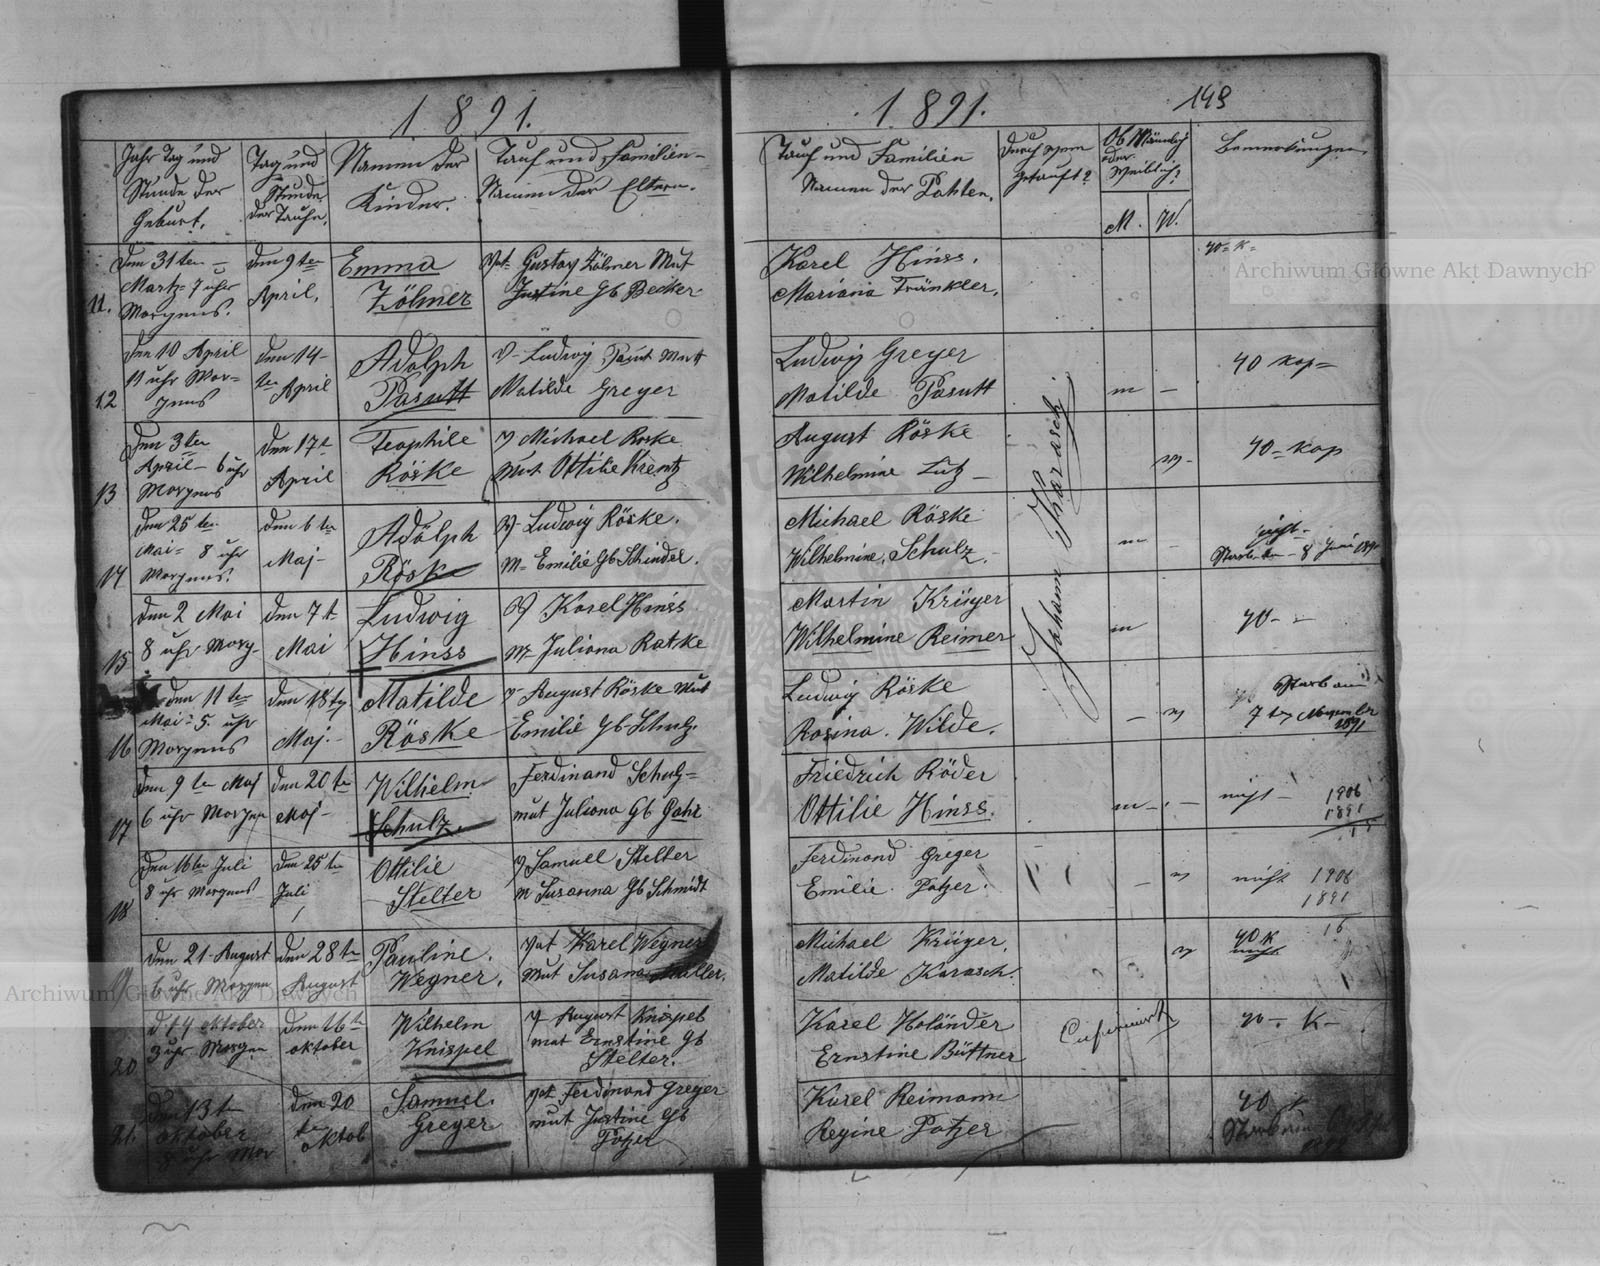 1891.
Jahr Tag und
Stunde der
Geburt.
Tag und
Stunde
der Taufe.
Namen der
Kinder.
Tauf und Familien-
Namen der Eltern.
11.
Den 31ten
Martz 7 uhr
Morgens.
den 9ten
April.
Emma
Zölmer
Vat. Gustav Zölmer Mut
Justine Gb Becker
12
Den 10 April
11 uhr Mor=
gens
den 14-
ten April
Adolph
Pasutt
V- Ludwig Pasut Mutt
Matilde Greger
13
Den 3ten
April- 6 uhr
Morgens
den 17t
April
Teophile
Röske
V Michael Roske
Mut. Ottilie Krentz
14
den 25 ten
Mai= 8 uhr
Morgens.
den 6 ten
Maj-
Adolph
Röske
V- Ludwig Röske.
M= Emilie Gb Schindel.
15
den 2 Mai
8 uhr Morg-
den 7 t
Mai
Ludwig
Hinss
V Karel Hinss
M= Juliana Ratke
16
den 11 ten
Mai= 5. uhr
Morgens
den 18 t
Maj.-
Matilde
Röske
V August Röske Mut
Emilie Gb Schulz.
17
den 9 ten Maj
6 uhr Morgen
den 20 ten
Maj-
Wilhelm
Schulz.
Ferdinand Schulz=
mut Juliana Gb
18
den 16ten Juli
8 uhr Morgens
den 25 ten
Juli
Ottilie
Stelter
V Samuel Stelter
M Susanna Gb Schmidt
19
den 21- August
6 uhr Morgen
den 28 ten
August
Pauline.
Wegner.
Vat Karel Wegner
Mut Susana Müller.
20
d 14 oktober
3 uhr Morgen
den 16 t
oktober
Wilhelm
Knispel
V August Knispel
mut Ernstine Gb
Stelter.
21.
den 13 t
oktober
uhr Mor
den 20
ten oktob
Samuel.
Greger
Vat Ferdinand Greger
mut Justine Gb
Potzer
1891.
149
Tauf und Familien
Namen der Pahten.
Durch wem
getauft?
Ob Männlich
oder
Weiblich?
M. W.
Bemerkungen
Karel Hinss.
Mariana Fränkler.
40= K=
Ludwig Greger
Matilde Pasutt
m -
40 kop=
August Röske
Wilhelmine Lutz -
w-
40= kop
Michael Röske
Wilhelmine. Schulz.-
m -
nicht-
Starb den - 8 Juni 1891
Martin Krüger
Wilhelmine Reimer
m
40- -
Johann Kharasch
Ludwig Röske
Rosina. Wilde.
- w
Starb am
7 November
1891
Friedrich Röder
Ottilie Hinss.
m - . -
nicht-
1906
1891
15
Ferdinand Greger
Emilie. Potzer.
- w
nicht
1906
1891
16
Michael Krüger.
Matilde Karasch.
w
40 K
nicht
Karel Holänder
Ernstine Büttner
40-. K-
Karel Reimann
Regine Potzer
40
Archiwum Główne Akt Dawnych
Archiwum Główne Akt Dawnych